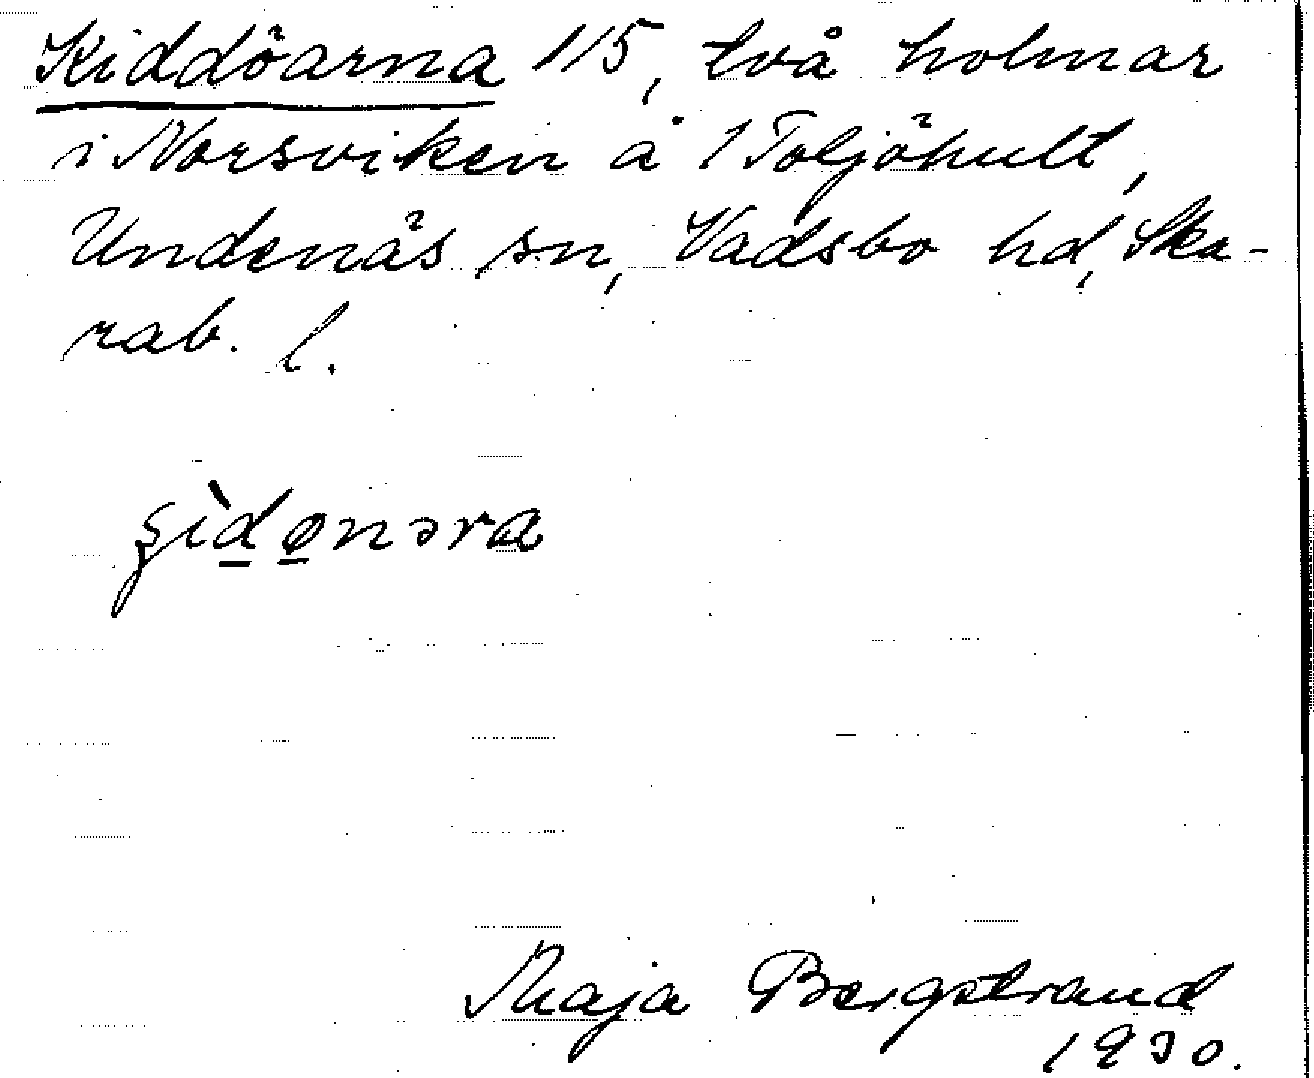 Kiddöarna 115, två holmar
i Norsviken å 1 Toljöhult,
Undenäs sn, Vadsbo hd, Ska-
rab. l.
Maja Bergstrand
1930.